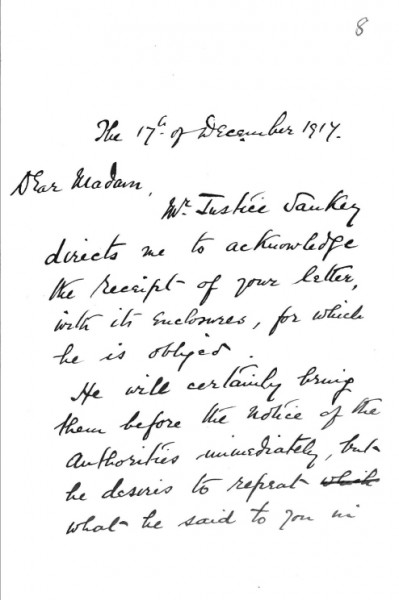 8
The 17th of December 1917.
Dear Madam,
Mr Justice Sankey
directs me to acknowledge
the receipt of your letter,
with its enclosures, for which
he is obliged.
He will certainly bring
them before the notice of the
Authorities immediately, but
he desires to repeat which
what he said to you in